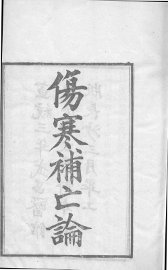 傷寒補亡論